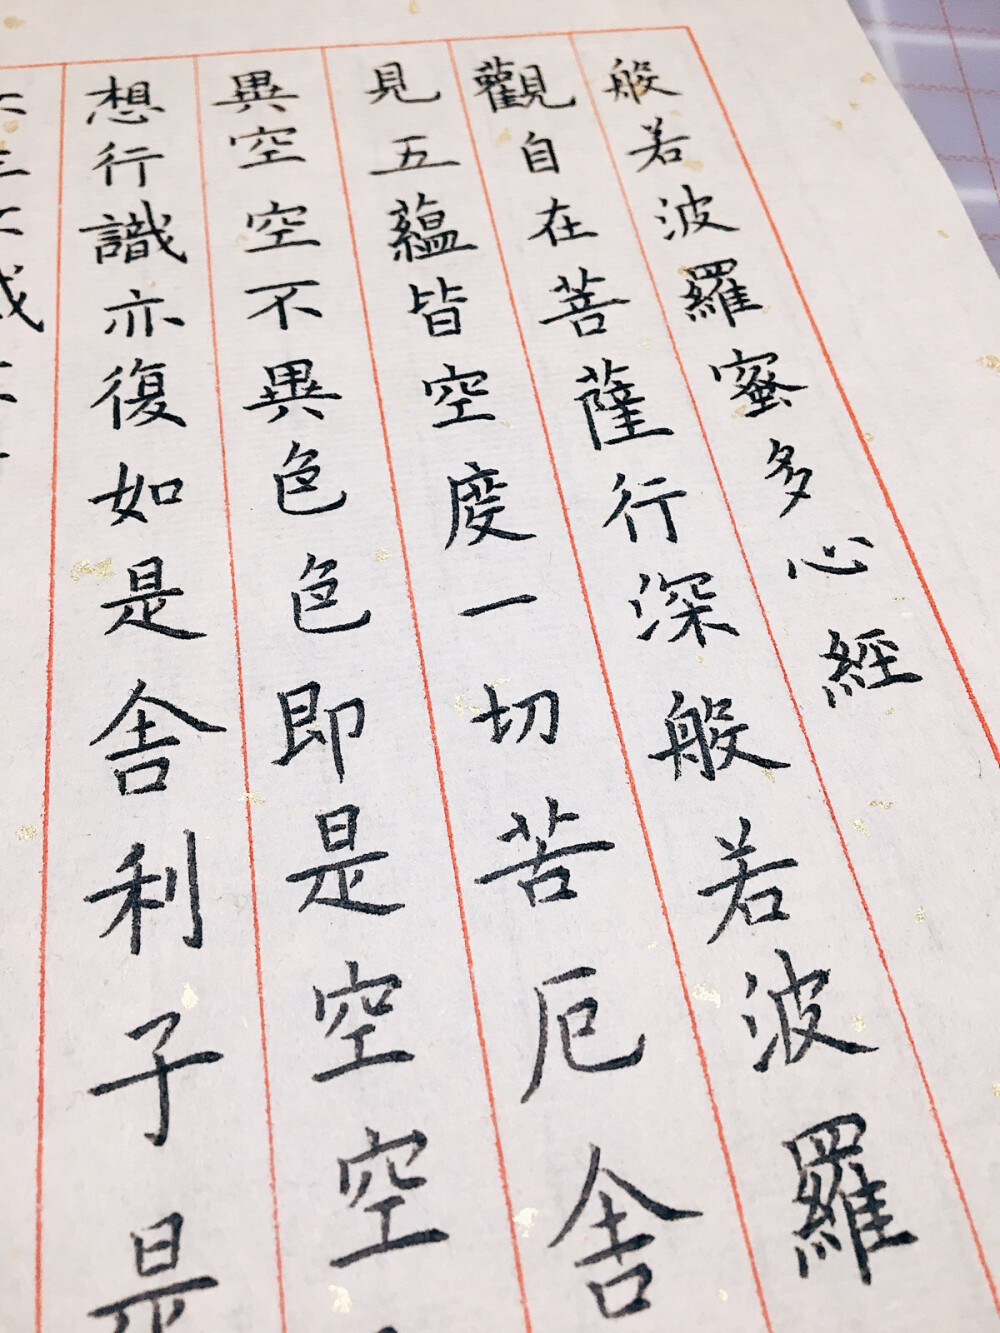 般若波羅蜜多心經
觀自在菩薩行深般若波羅
見五蘊皆空度一切苦厄舍
異空空不異色色即是空空
想行識亦復如是舍利子是